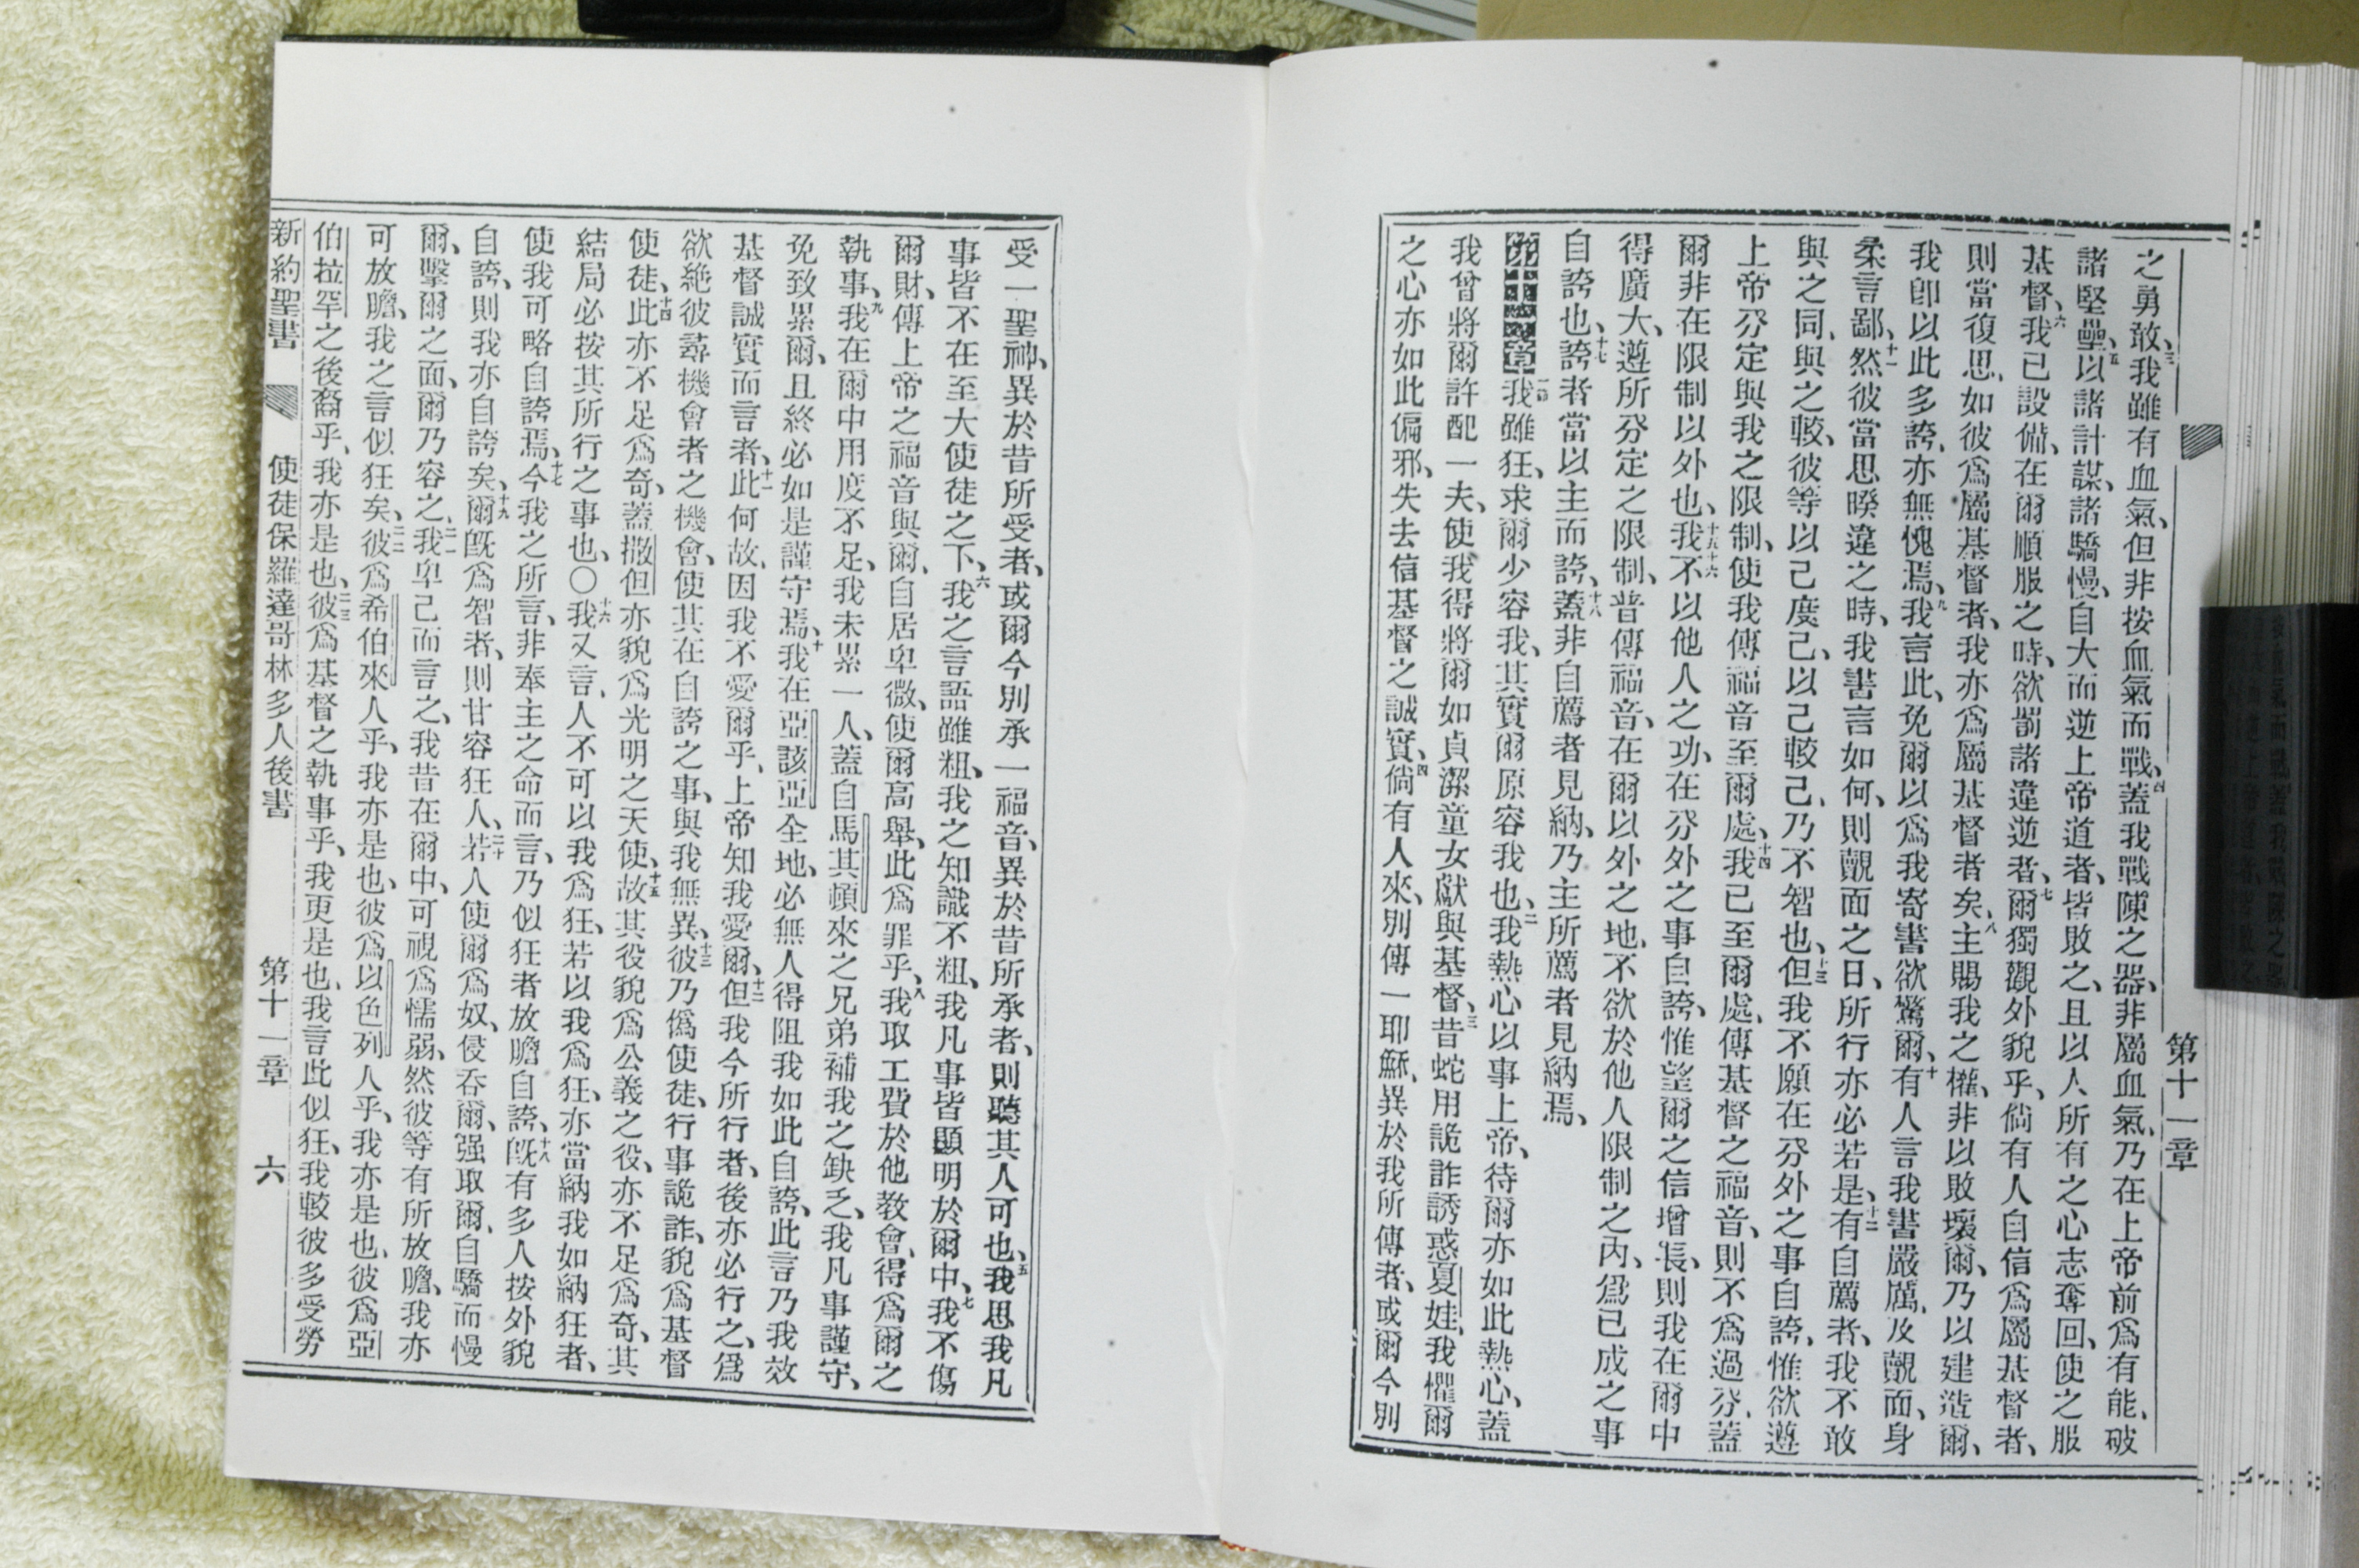 之勇敢、三我雖有血氣、但非按血氣而戰、四蓋我戰陳之器、非屬血氣、乃在上帝前爲有能、破
諸堅壘、五以諸計謀、諸驕慢、自大而逆上帝道者、皆敗之、且以人所有之心志奪回、使之服
基督、六我已設備、在爾順服之時、欲罰諸違逆者、七爾獨觀外貌乎、倘有人自信爲屬基督者、
則當復思、如彼爲屬基督者、我亦爲屬基督者矣、八主賜我之權、非以敗壞爾、乃以建造爾、
我卽以此多誇、亦無愧焉、九我言此、免爾以爲我寄書欲驚爾、十有人言我書嚴厲、及覿面、身
柔言鄙、十一然彼當思暌違之時、我書言如何、則覿面之日、所行亦必若是、十二有自薦者、我不敢
與之同、與之較、彼等以己度己、以己較己、乃不智也、十三但我不願在分外之事自誇、惟欲遵
上帝分定與我之限制、使我傳福音至爾處、十四我已至爾處、傳基督之福音、則不爲過分、蓋
爾非在限制以外也、十五十六我不以他人之功、在分外之事自誇、惟望爾之信增長、則我在爾中
得廣大、遵所分定之限制、普傳福音、在爾以外之地、不欲於他人限制之內、爲已成之事
自誇也、十七誇者當以主而誇、十八蓋非自薦者見納、乃主所薦者見納焉、
第十一章 一節我雖狂、求爾少容我、其實爾原容我也、二我熱心以事上帝、待爾亦如此熱心、蓋
我曾將爾許配一夫、使我得將爾如貞潔童女獻與基督、三昔蛇用詭詐誘惑夏娃、我懼爾
之心亦如此偏邪、失去信基督之誠實、四倘有人來、別傳一耶穌、異於我所傳者、或爾今別
第十一章
受一聖神、異於昔所受者、或爾今別承一福音、異於昔所承者、則聽其人可也、五我思我凡
事皆不在至大使徒之下、六我之言語雖粗、我之知識不粗、我凡事皆顯明於爾中、七我不傷
爾財、傳上帝之福音與爾、自居卑微、使爾高舉、此爲罪乎、八我取工費於他敎會、得爲爾之
執事、九我在爾中用度不足、我未累一人、蓋自馬其頓來之兄弟補我之缺乏、我凡事謹守、
免致累爾、且終必如是謹守焉、十我在亞該亞全地、必無人得阻我如此自誇、此言乃我效
基督誠實而言者、十一此何故、因我不愛爾乎、上帝知我愛爾、十二但我今所行者、後亦必行之、爲
欲絕彼尋機會者之機會、使其在自誇之事、與我無異、十三彼乃僞使徒、行事詭詐、貌爲基督
使徒、十四此亦不足爲奇、蓋撒但亦貌爲光明之天使、十五故其役貌爲公義之役、亦不足爲奇、其
結局必按其所行之事也、〇十六我又言、人不可以我爲狂、若以我爲狂、亦當納我如納狂者、
使我可略自誇焉、十七今我之所言、非奉主之命而言、乃似狂者放膽自誇、十八旣有多人按外貌
自誇、則我亦自誇矣、十九爾旣爲智者、則甘容狂人、二十若人使爾爲奴、侵吞爾、强取爾、自驕而慢
爾、擊爾之面、爾乃容之、二一我卑己而言之、我昔在爾中、可視爲懦弱、然彼等有所放膽、我亦
可放膽、我之言似狂矣、二二彼爲希伯來人乎、我亦是也、彼爲以色列人乎、我亦是也、彼爲亞
伯拉罕之後裔乎、我亦是也、二三彼爲基督之執事乎、我更是也、我言此似狂、我較彼多受勞
新約聖書 使徒保羅達哥林多人後書 第十一章 六